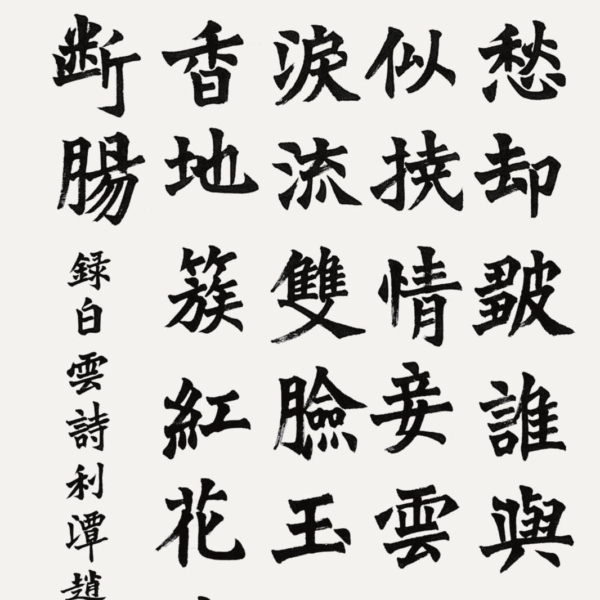 愁却皺誰與
似挠情妾雲
淚流雙臉玉
香地簇紅花
断腸
録白雲詩利潭趙